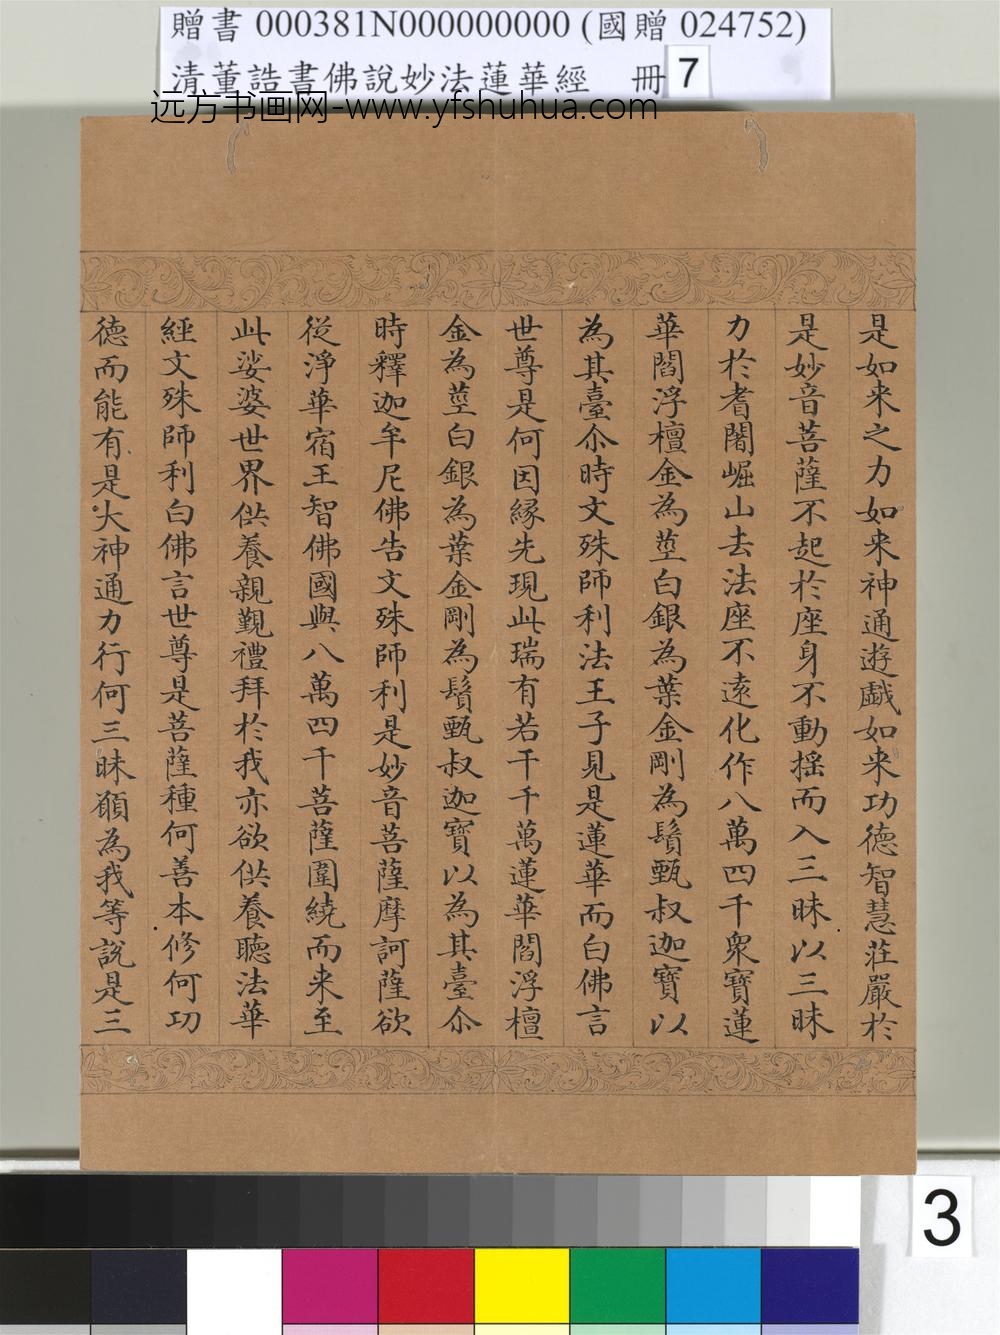 贈書 000381N000000000 (國贈 024752)
清董誥書佛說妙法蓮華經 冊 7
远方书画网-www.yfshuhua.com
是如来之力如来神通遊戯如来功德智慧莊嚴於
是妙音菩薩不起於座身不動揺而入三昧以三昧
力於耆闍崛山去法座不遠化作八萬四千衆寶蓮
華閻浮檀金為莖白銀為葉金剛為鬚甄叔迦寶以
為其臺尒時文殊師利法王子見是蓮華而白佛言
世尊是何因緣先現此瑞有若千千萬蓮華閻浮檀
金為莖白銀為葉金剛為鬚甄叔迦寶以為其臺尒
時釋迦牟尼佛告文殊師利是妙音菩薩摩訶薩欲
從淨華宿王智佛國與八萬四千菩薩圍繞而来至
此娑婆世界供養親覲禮拜於我亦欲供養聽法華
經文殊師利白佛言世尊是菩薩種何善本修何功
德而能有是大神通力行何三昧願為我等說是三
3